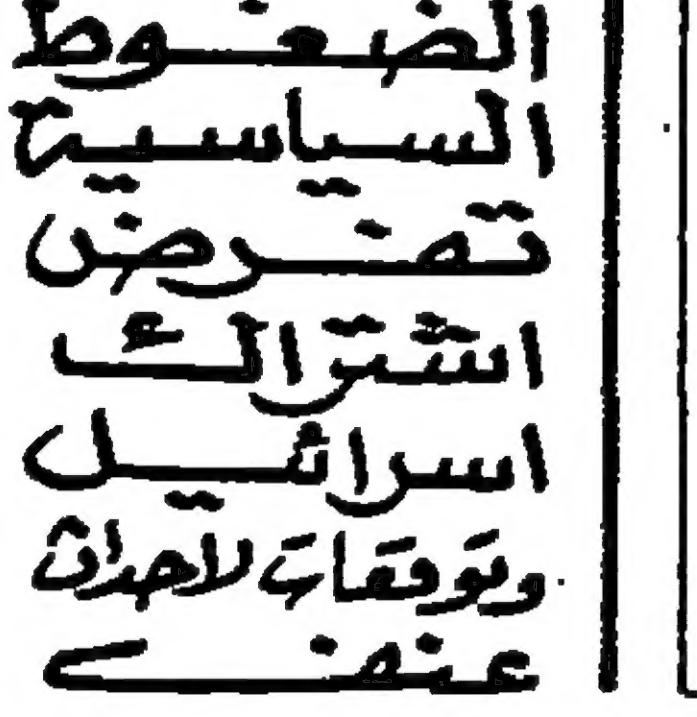 الضغوط
السياسية
تفرض
اشتراك
اسرائيل
وتوقعات لاحداث
عنف